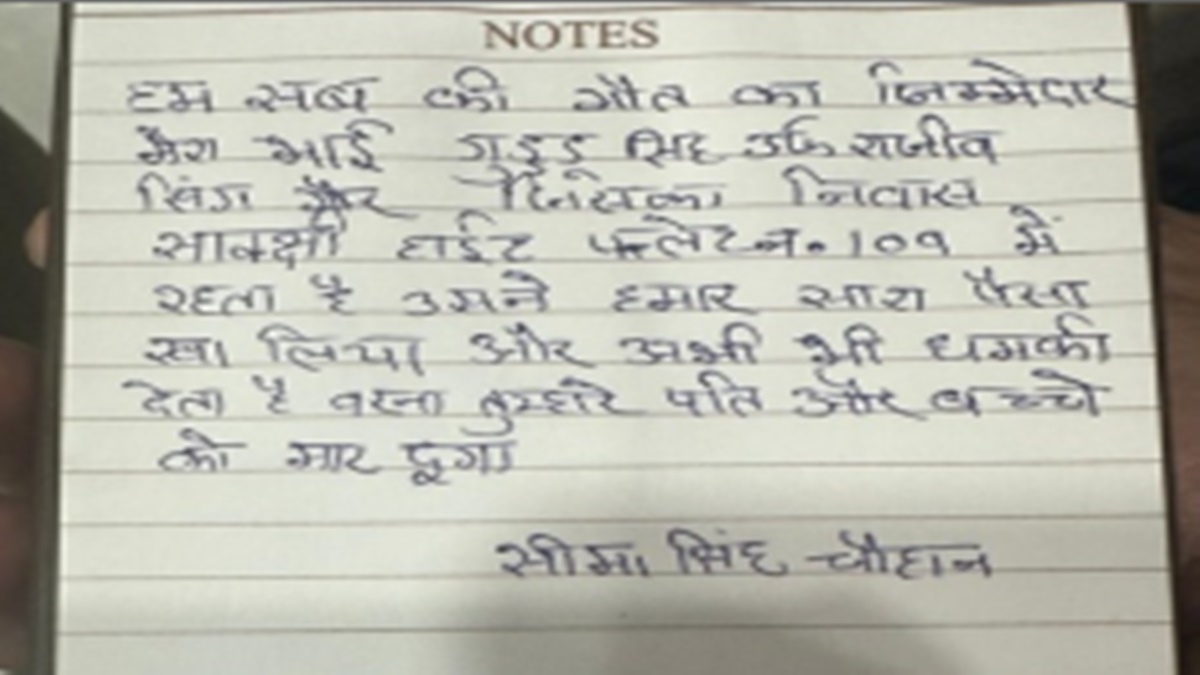 NOTES
हम सब की मौत का जिम्मेदार
मेरा भाई गुड्डू सिंह उर्फ राजीव
सिंग और जिसका निवास
साक्षी हाईट फ्लेट न. 109 में
रहता है उसने हमार सारा पैसा
खा लिया और अभी भी धमकी
देता है वरना तुम्हारे पति और बच्चे
को मार दूगा
सीमा सिंह चौहान